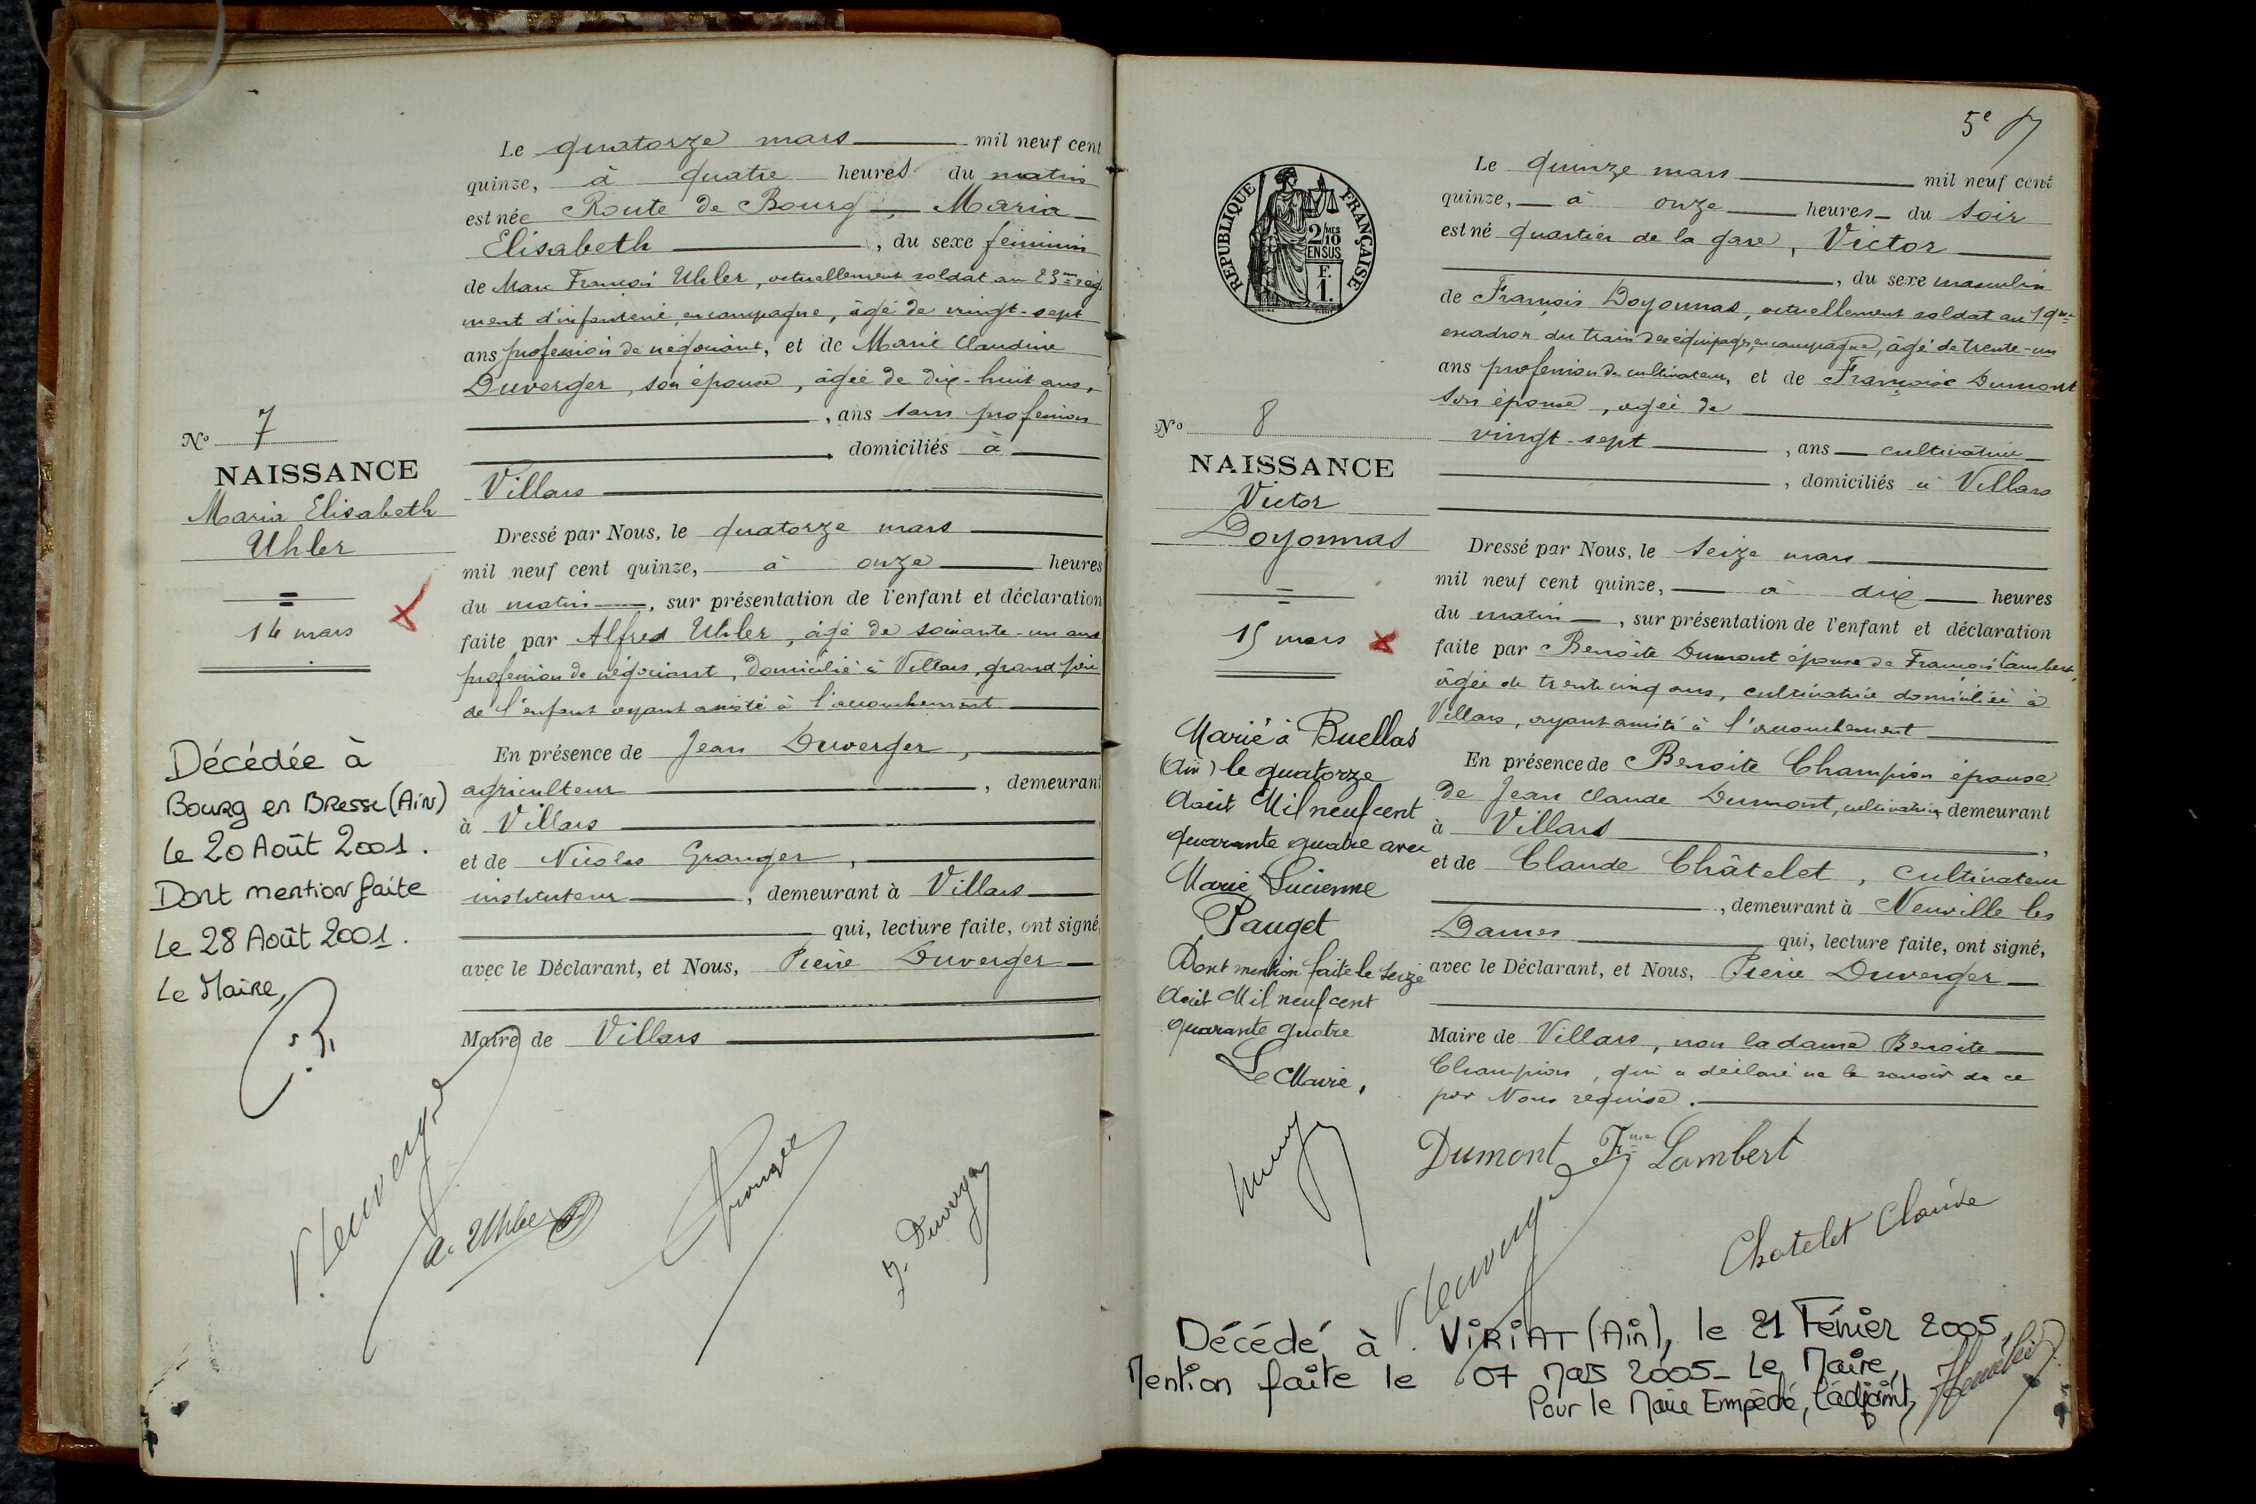 Le quatorze mars mil neuf cent
quinze, à quatre heures du matin
est née Route de Bourg, Maria
Elisabeth, du sexe féminin
de Marc François Uhler, actuellement soldat au 23me régi
ment d'infanterie, en campagne, âgé de vingt-sept
ans profession de négociant, et de Marie Claudine
Duverger, son épouse, âgée de dix-huit ans,
, ans sans profession
domiciliés à
Villars
Dressé par Nous, le quatorze mars
mil neuf cent quinze, à onze heures
du matin, sur présentation de l'enfant et déclaration
faite par Alfred Uhler, âgé de soixante-un ans
profession de négociant, domicilié à Villars, grand père
de l'enfant ayant assisté à l'accouchement
En présence de Jean Duverger,
agriculteur, demeurant
à Villars
et de Nicolas Granger,
instituteur, demeurant à Villars
qui, lecture faite, ont signé
avec le Déclarant, et Nous, Pierre Duverger
Maire de Villars
No 7
NAISSANCE
Maria Elisabeth
Uhler
14 mars
Décédée à
Bourg en Bresse (Ain)
Le 20 Août 2001.
Dont mention faite
Le 28 Août 2001.
Le Maire,
P. Duverger
A. Uhler
Granger
J. Duverger
5e
RÉPUBLIQUE FRANÇAISE
2/10 MES
EN SUS
F.
1.
Le quinze mars mil neuf cent
quinze, à onze heures du soir
est né quartier de la gare, Victor
, du sexe masculin
de François Doyonnas, actuellement soldat au 19me
escadron du train des équipages, en campagne, âgé de trente-un
ans profession de cultivateur, et de Françoise Dumont
son épouse, âgée de
vingt-sept, ans cultivatrice
, domiciliés à Villars
Dressé par Nous, le seize mars
mil neuf cent quinze, à dix heures
du matin, sur présentation de l'enfant et déclaration
faite par Benoîte Dumont épouse de François Lambert,
âgée de trente cinq ans, cultivatrice domiciliée à
Villars, ayant assisté à l'accouchement
En présence de Benoite Champion épouse
de Jean Claude Dumont, cultivatrice, demeurant
à Villars,
et de Claude Châtelet, cultivateur
, demeurant à Neuville les
Dames qui, lecture faite, ont signé,
avec le Déclarant, et Nous, Pierre Duverger
Maire de Villars, non la dame Benoite
Champion, qui a déclaré ne le savoir de ce
par Nous requise.
No 8
NAISSANCE
Victor
Doyonnas
15 mars
Marié à Buellas
(Ain) le quatorze
Août Mil neuf cent
quarante quatre avec
Marie Lucienne
Pauget
Dont mention faite le seize
Août Mil neuf cent
quarante quatre
Le Maire,
Dumont Fme Lambert
P. Duverger
Chatelet Claude
Décédé à VIRIAT (Ain), le 21 Février 2005
Mention faite le 07 Mars 2005 - Le Maire,
Pour le Maire Empêché, l'adjoint,